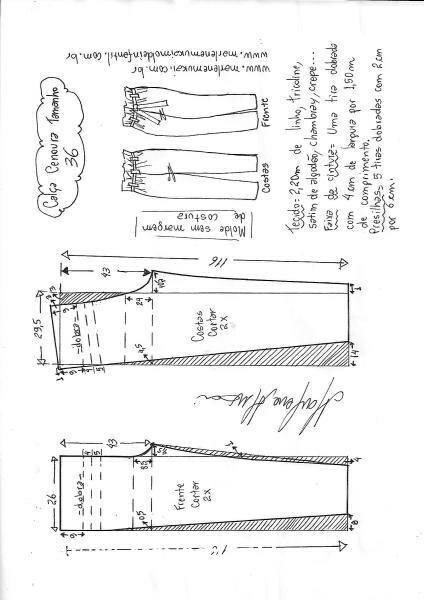 Calça Cenoura Tamanho
36
www.marlenemukaimoldeinfantil.com.br
www.marlenemukai.com.br
Frente
Costas
Molde sem margem
de costura
Tecido= 2,20m de linho, tricoline,
satim de algodão, chambray, crepe...
Faixa de cintura= Uma tira dobrada
com 4cm de largura por 1,50m
de comprimento.
Presilhas= 5 tiras dobradas com 2cm
por 6cm.
116
43
29,5
6
-dobra-
24
Costas
Cortar
2x
2,5
1
14
43
26
6
-dobra-
4
5
Frente
Cortar
2x
4
8